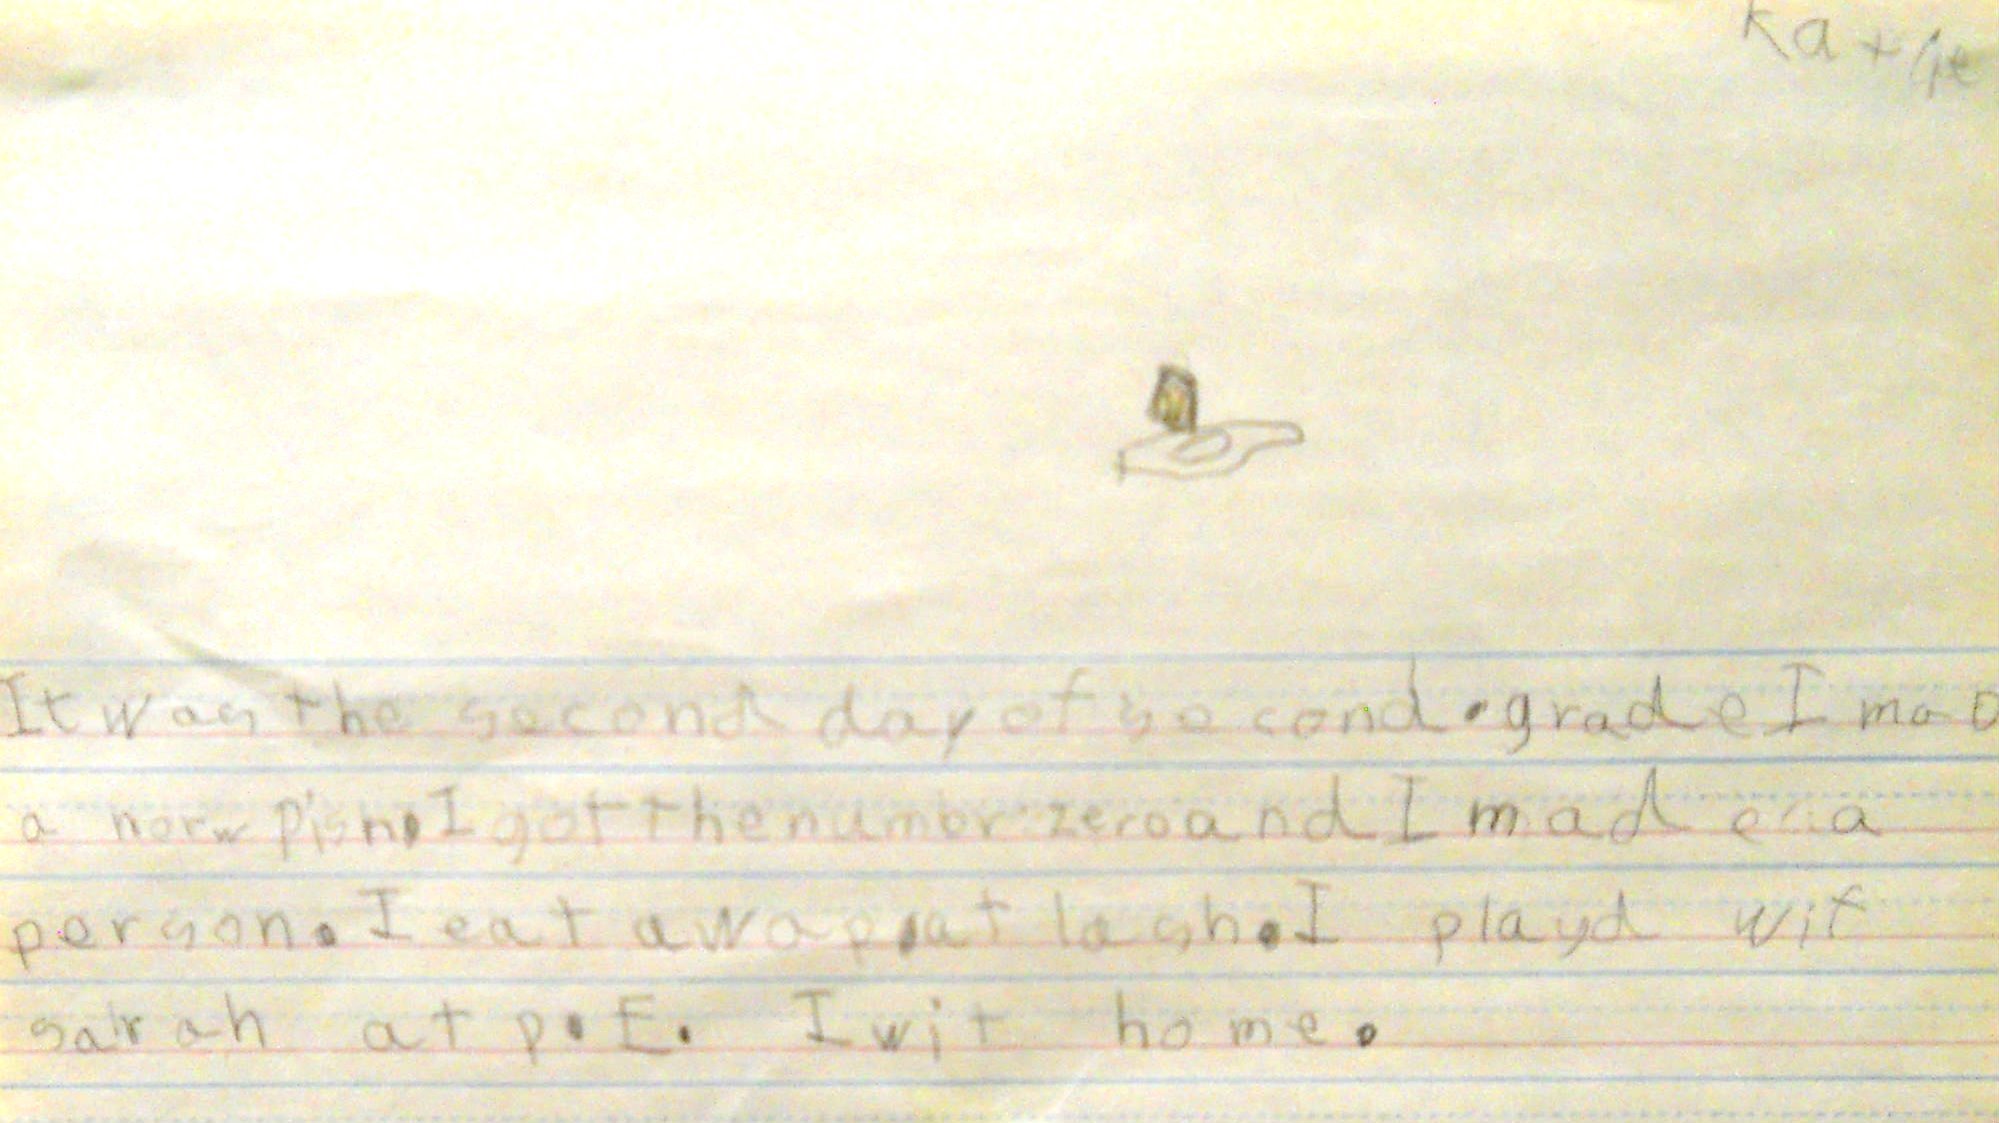 Katie
It was the second day of second.grade I mad
a norw pisn. I got the numbr zero and I made a
person. I eat awop at lash. I playd wit
sarah at p.E. I wit home.